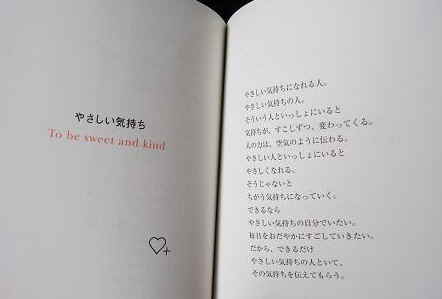 やさしい気持ち
To be sweet and kind
やさしい気持ちになれる人。
やさしい気持ちの人。
そういう人といっしょにいると
気持ちが、すこしずつ、変わってくる。
人の力は、空気のように伝わる。
やさしい人といっしょにいると
やさしくなれる。
そうじゃないと
ちがう気持ちになっていく。
できるなら
やさしい気持ちの自分でいたい。
毎日をおだやかにすごしていきたい。
だから、できるだけ
やさしい気持ちの人といて、
その気持ちを伝えてもらう。